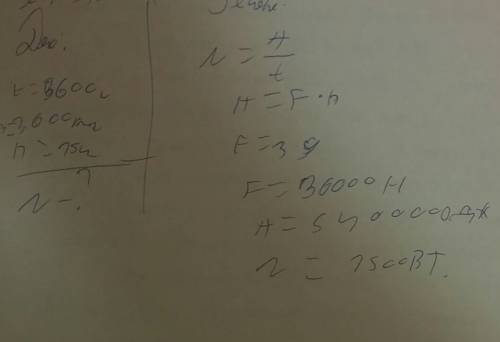 Дано:
t=3600с
m=3600кг
h=15м
N-?
Решение.
N = A/t
A=F·h
F=mg
F=36000Н
A=540000Дж
N=1500Вт.